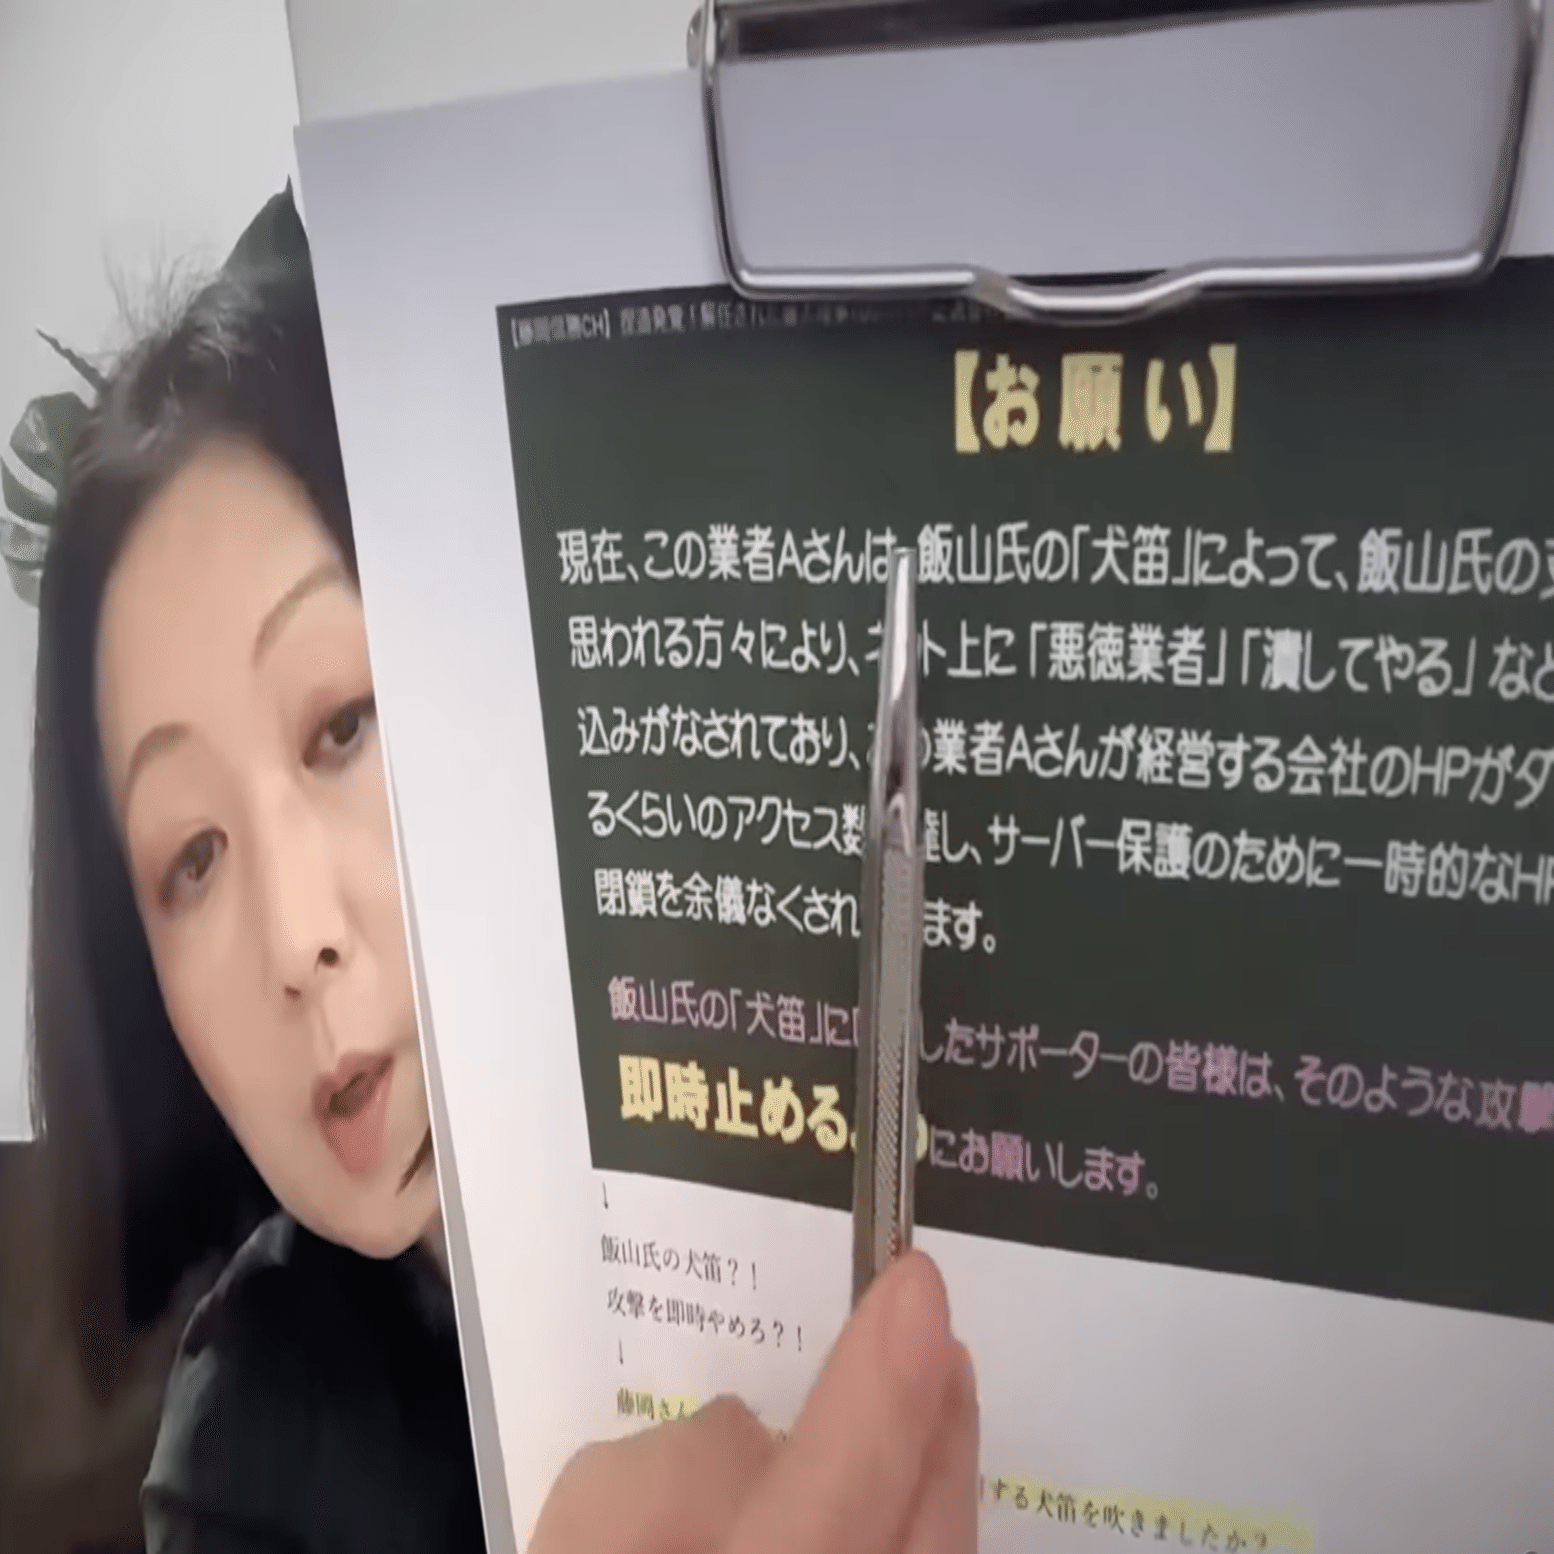 【お願い】
現在、この業者Aさんは、飯山氏の「犬笛」によって、飯山氏の
思われる方々により、ネット上に「悪徳業者」「潰してやる」など
込みがなされており、業者Aさんが経営する会社のHPがダ
るくらいのアクセス数 達し、サーバー保護のために一時的なHP
閉鎖を余儀なくされ ます。
飯山氏の「犬笛」に したサポーターの皆様は、そのような攻撃
即時止める にお願いします。
↓
飯山氏の犬笛?!
攻撃を即時やめろ?!
↓
藤岡さん
する犬笛を吹きましたか?